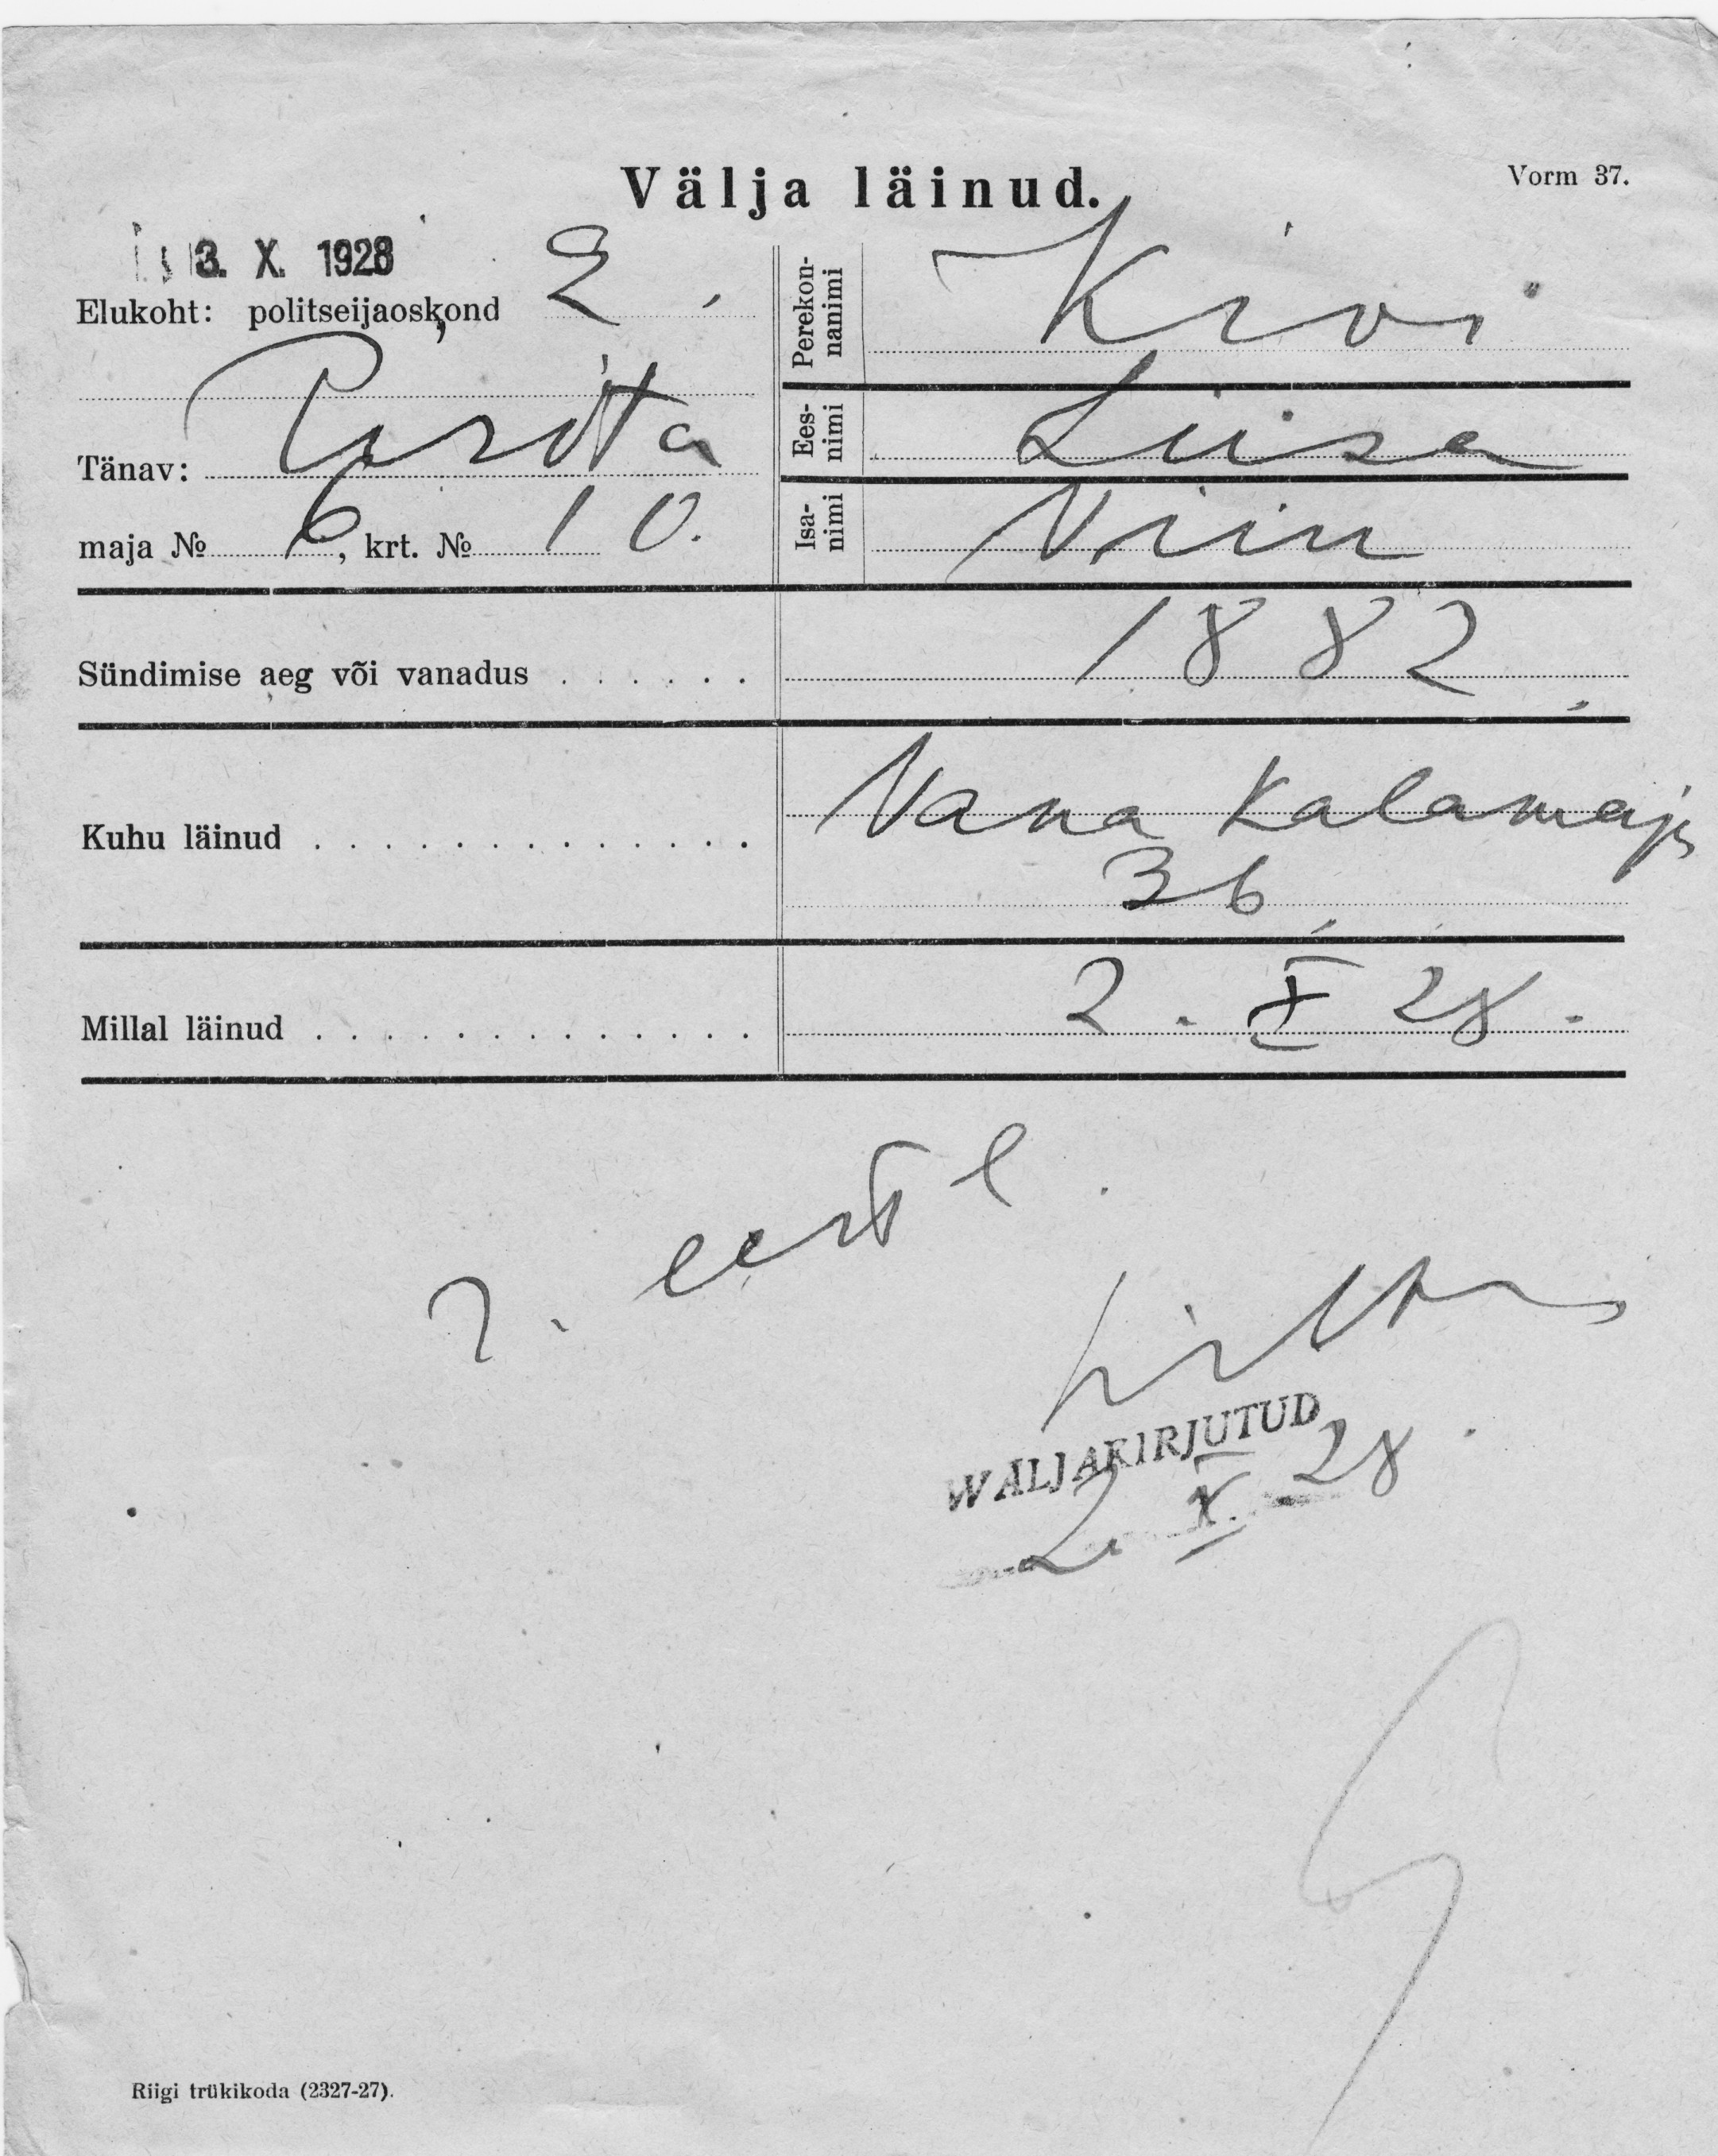 Välja läinud.
Vorm 37.
3. X. 1928
Elukoht: politseijaoskond 2.
Tänav: Pirita
maja № 6, krt. № 10.
Perekonnanimi Kivi
Eesnimi Liisa
Isanimi Viiu
Sündimise aeg või vanadus . . . . . . 1882
Kuhu läinud . . . . . . . . . . . . . Vana Kalamaja
36
Millal läinud . . . . . . . . . . . . . 2. X 28.
WÄLJAKIRJUTUD
2. X. 28.
Riigi trükikoda (2327-27).